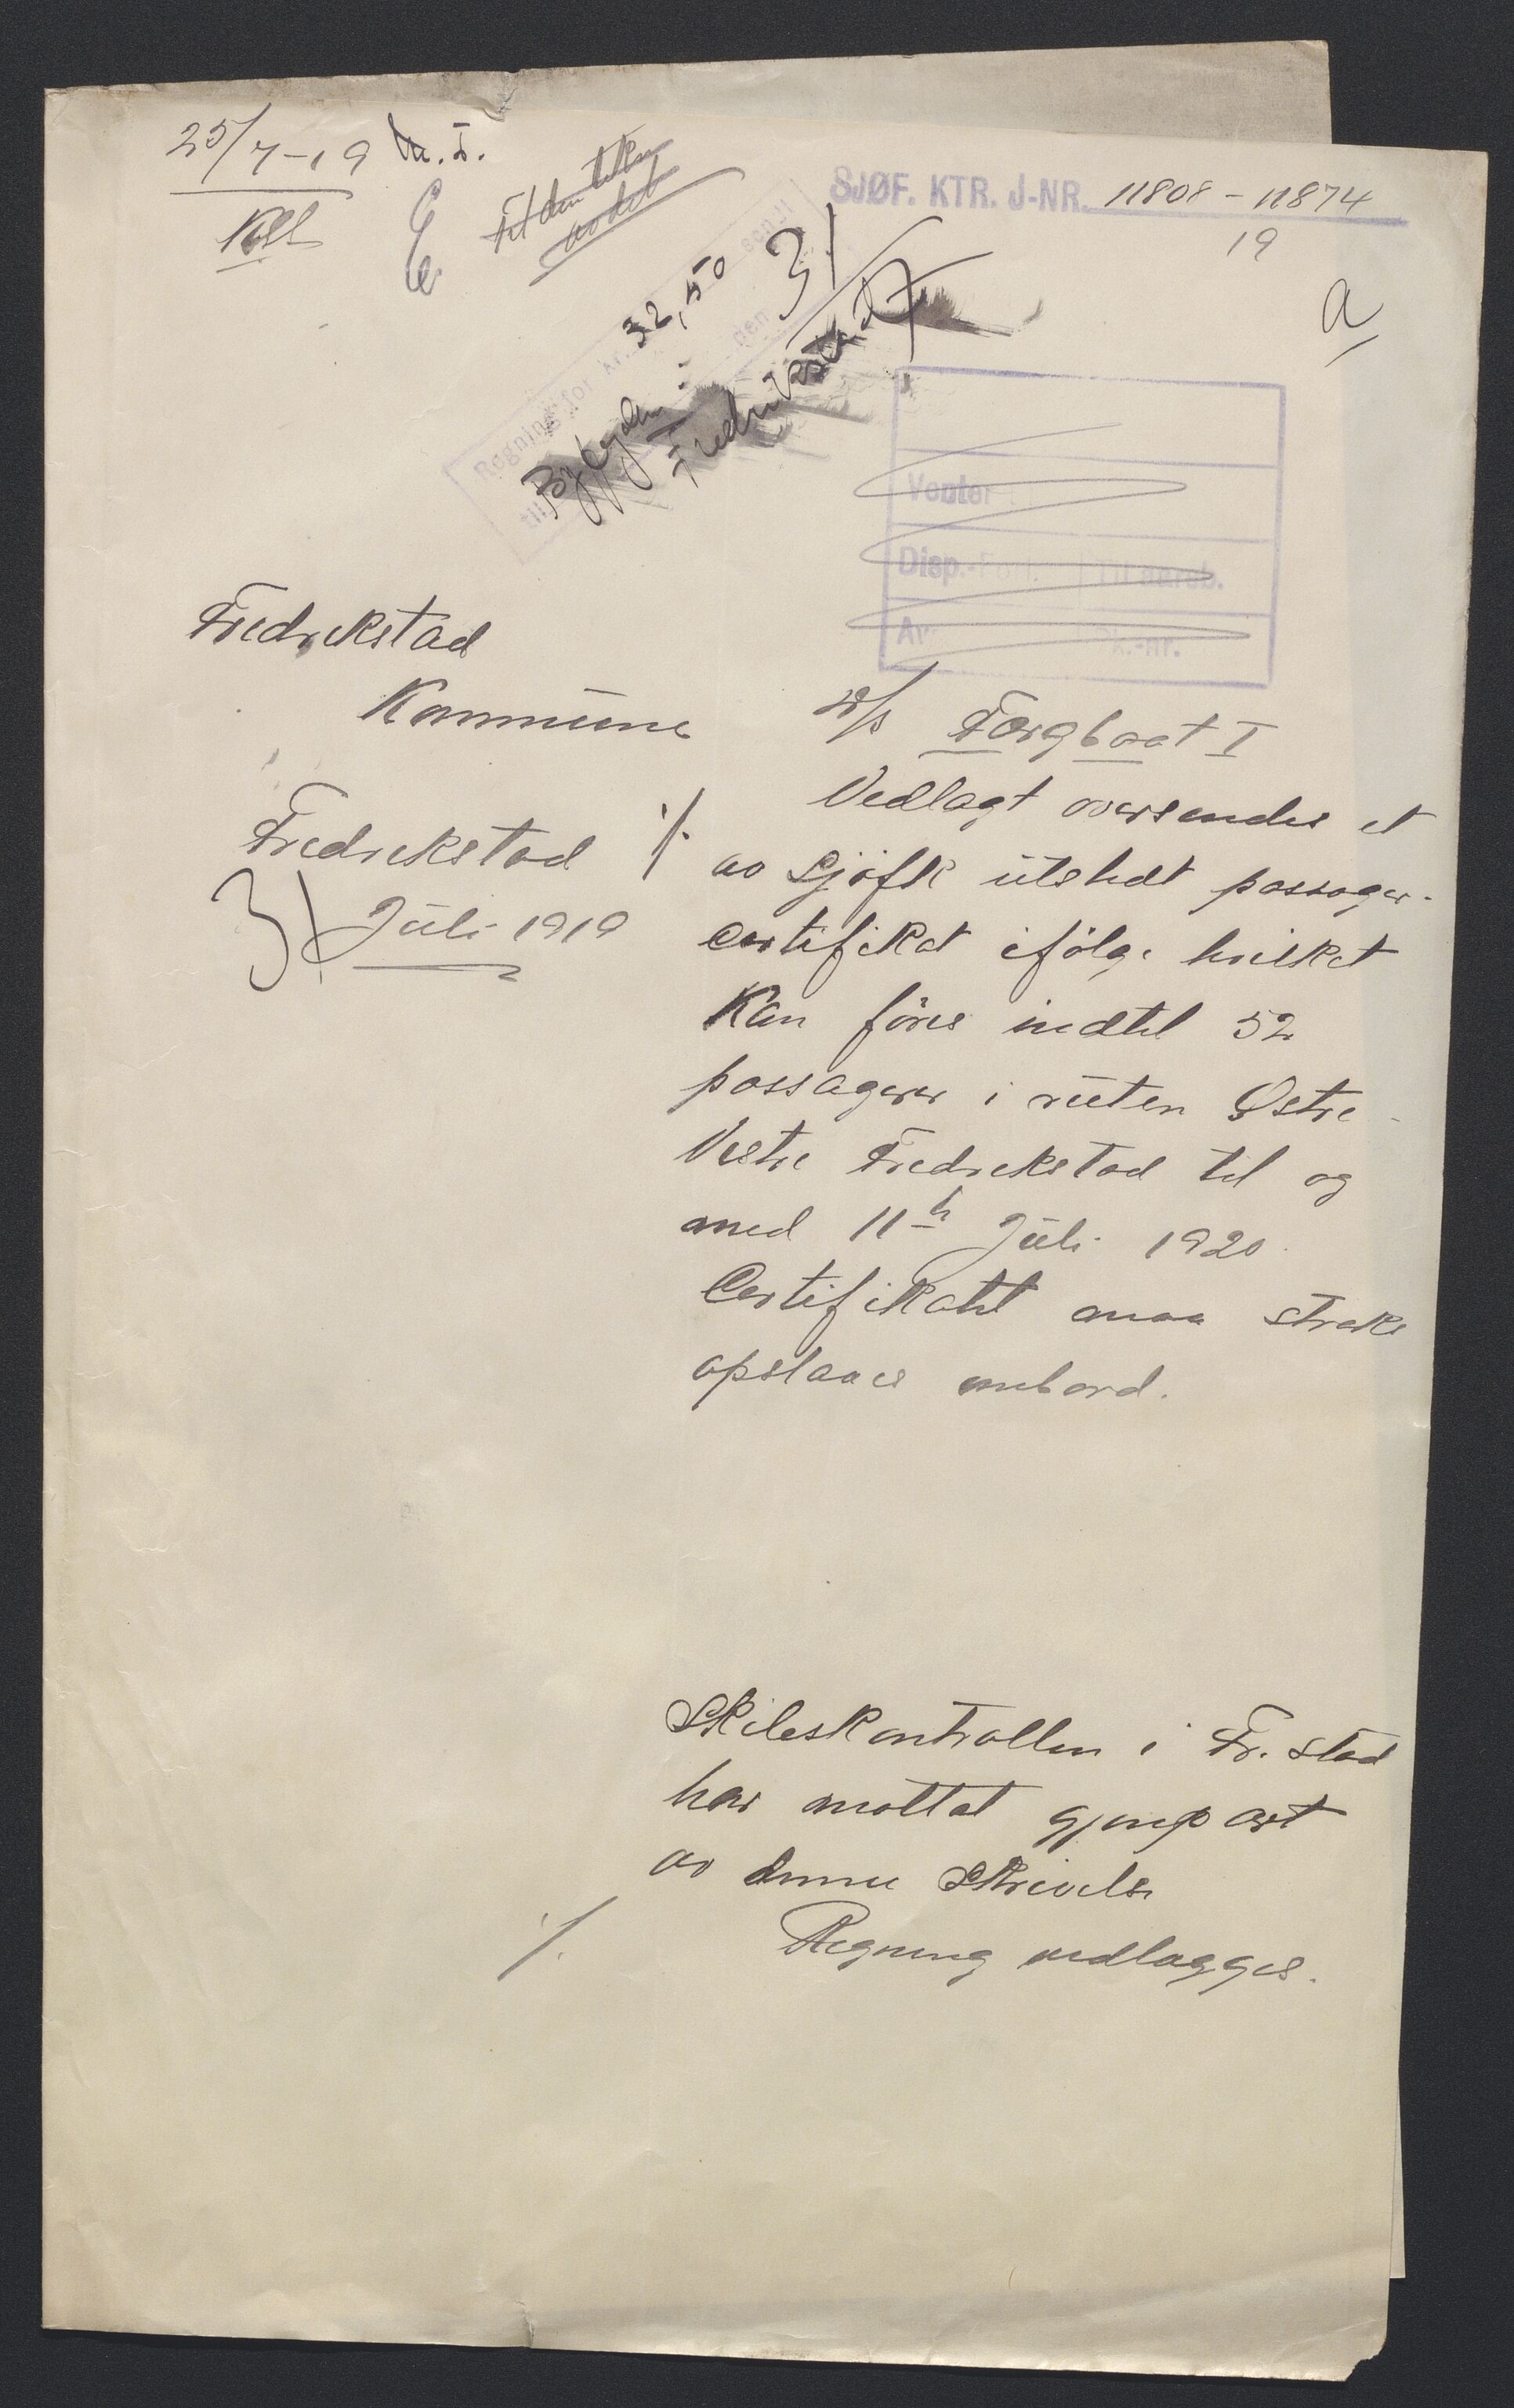 25/7-19
SJØF. KTR. J-NR. 11808 - 11874
19
a
Regning for kr. 32,50 send
til Bykassen den 31/7
Fredrikstad
Venter
Disp.
Fredrikstad
Kommune
D/S Færgbaat I
Fredrikstad
31 Juli 1919
./. Vedlagt oversendes et
av Sjöfk utstedt passager-
certifikat ifölge hvilket
kan föres indtil 52
passagerer i ruten Østre -
Vestre Fredrikstad til og
med 11te Juli 1920.
Certifikatet maa straks
opslaaes ombord.
Skibskontrollen i Fr.stad
har mottat gjenpart
av denne skrivelse
./. Regning vedlægges.